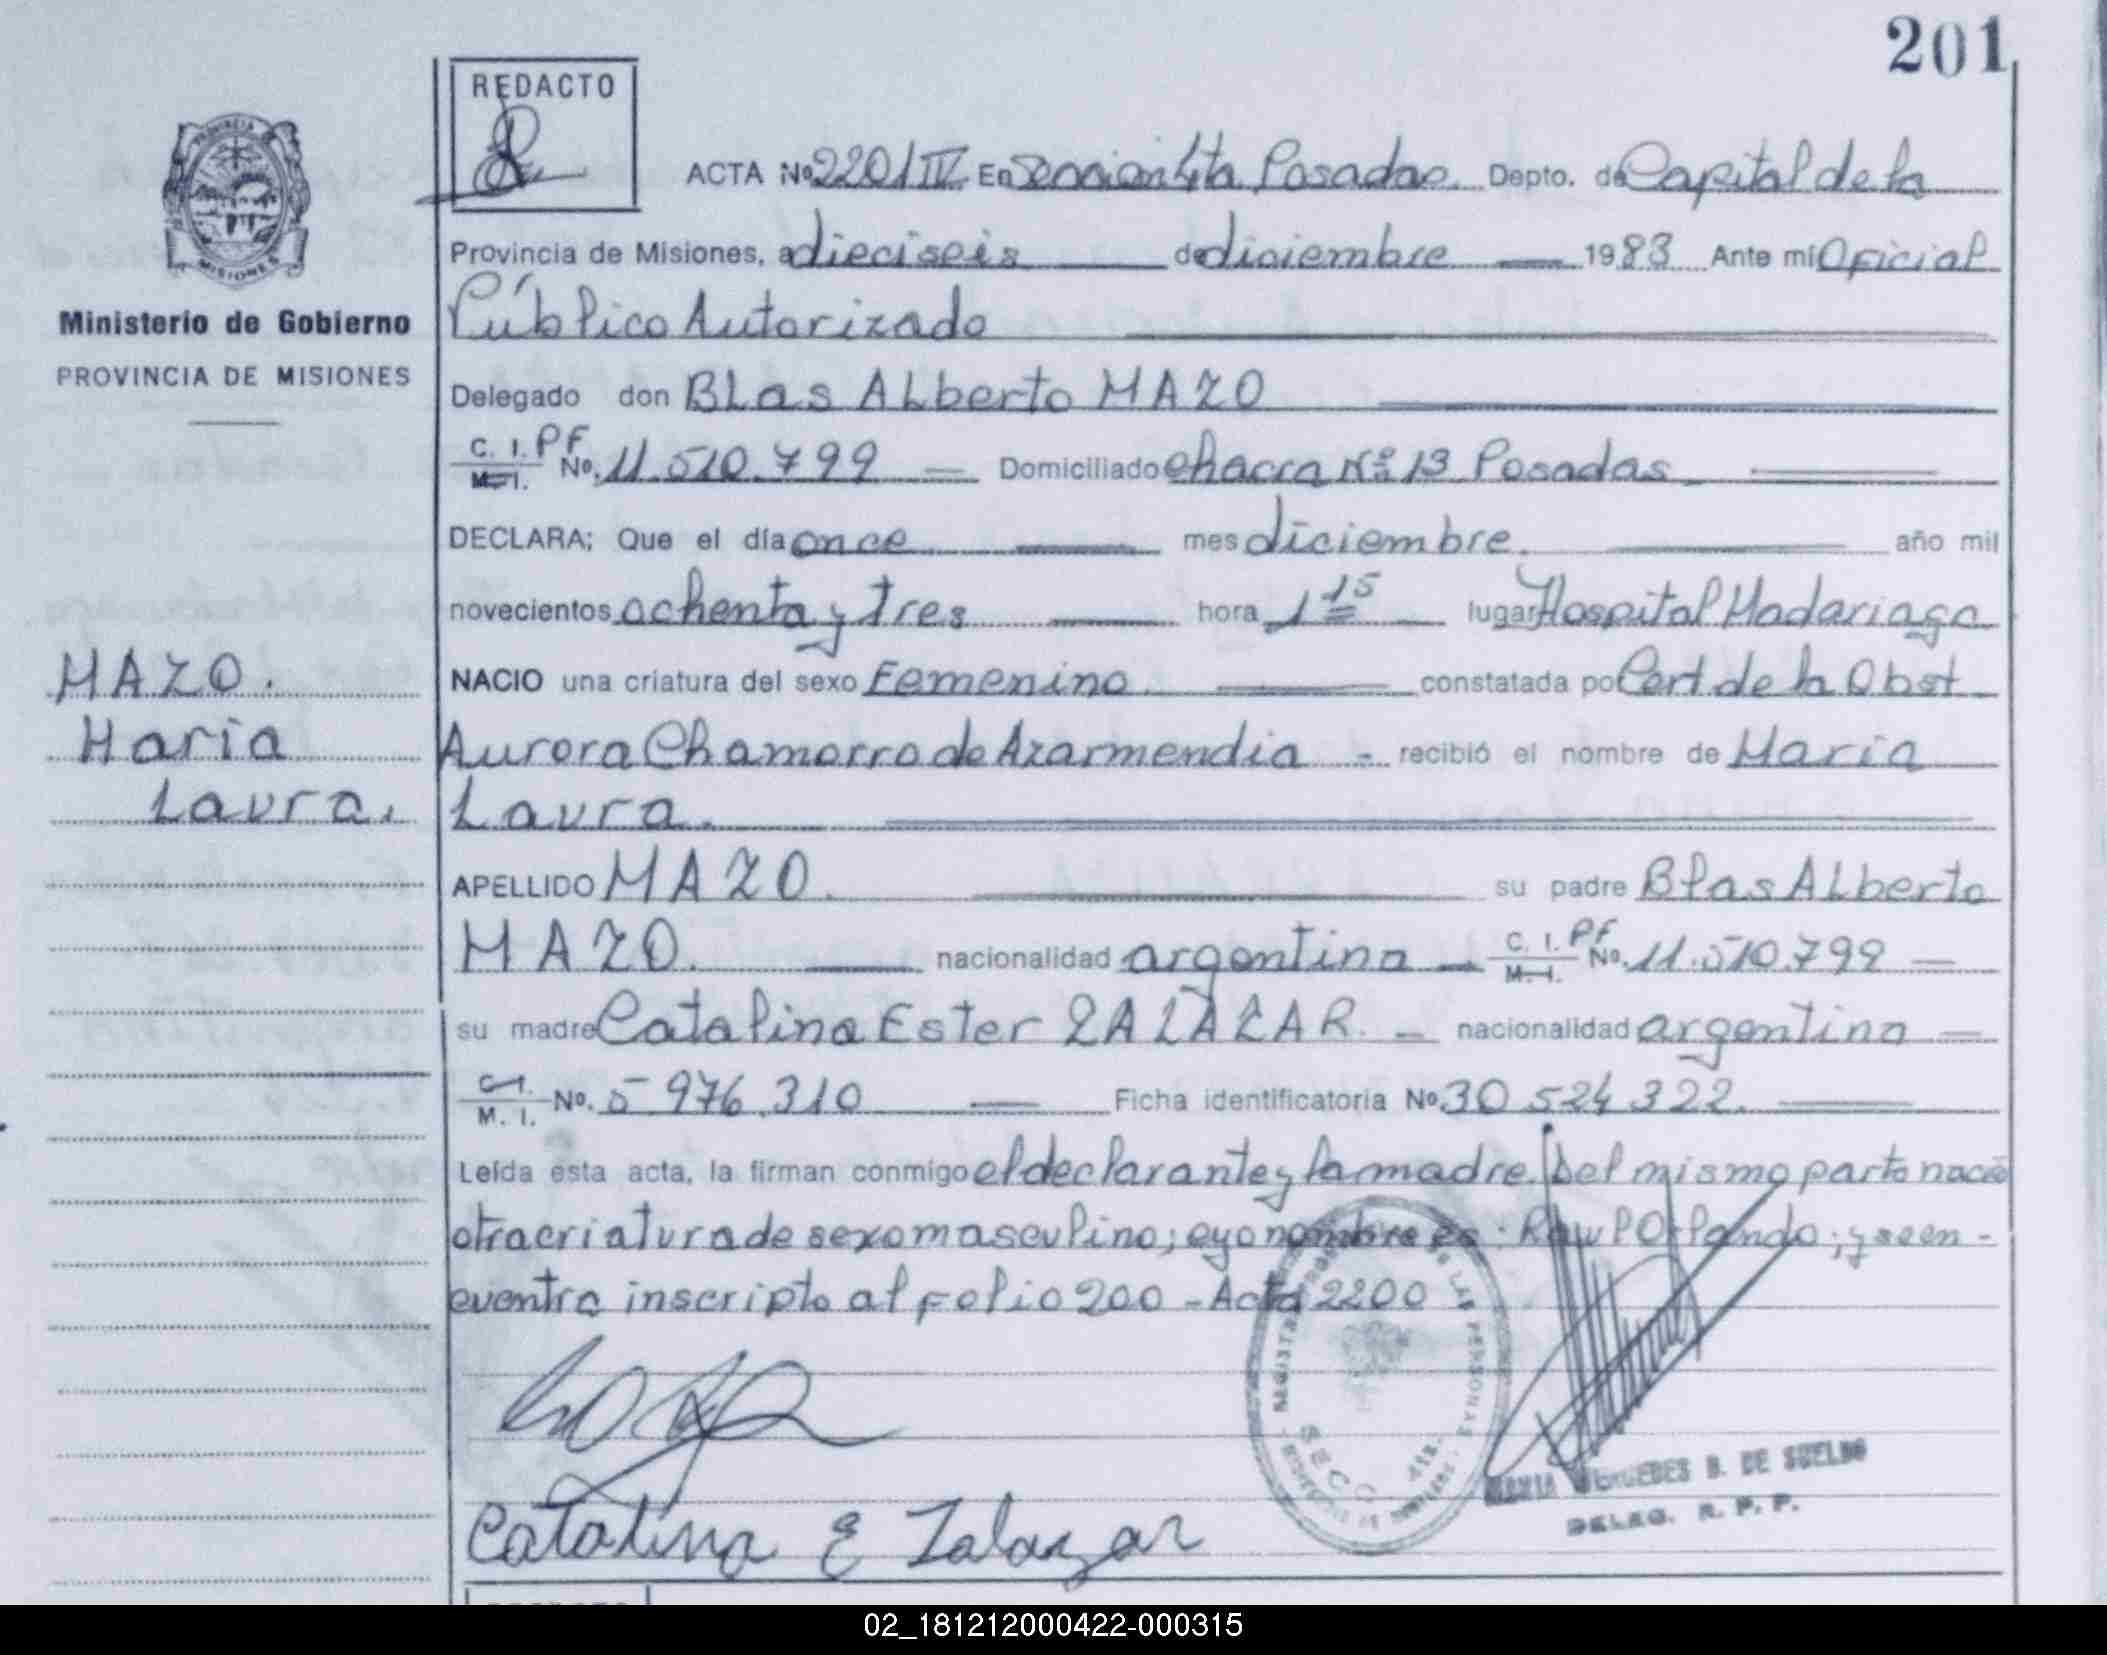 201
REDACTO
ACTA Nº 2201/IV En Sección 4ta Posadas. Depto. de Capital de la
Provincia de Misiones, a dieciseis de diciembre 1983 Ante mí Oficial
Público Autorizado
PROVINCIA
MISIONES
Ministerio de Gobierno
PROVINCIA DE MISIONES
Delegado don BLas ALberto MAZO
C. I. PF
M. I. Nº. 11.510.799 Domiciliado chacra Nº 13 Posadas
DECLARA; Que el día once mes diciembre. año mil
novecientos ochenta y tres hora 1 15 lugar Hospital Madariaga
NACIO una criatura del sexo Femenino. constatada po Cert. de la Obst.
Aurora Chamorro de Azarmendia - recibió el nombre de Maria
Laura.
MAZO.
Maria
Laura.
APELLIDO MAZO. su padre Blas ALberto
MAZO. nacionalidad argentina C. I. PF
M. I. Nº. 11.510.799
su madre Catalina Ester ZALAZAR. nacionalidad argentina
C. I.
M. I. Nº. 5 976.310 Ficha identificatoria Nº 30 524 322.
Leída esta acta, la firman conmigo el declarante y la madre. Del mismo parto nació
otra criatura de sexo masculino; cyo nombre es: Raul Orlando; y se en-
cuentra inscripto al folio 200 - Acta 2200
LAS PERSONAS
SECC 4ta.
Catalina E Zalazar
MARIA MERCEDES B. DE SUELDO
DELEG. R. P. P.
02_181212000422-000315